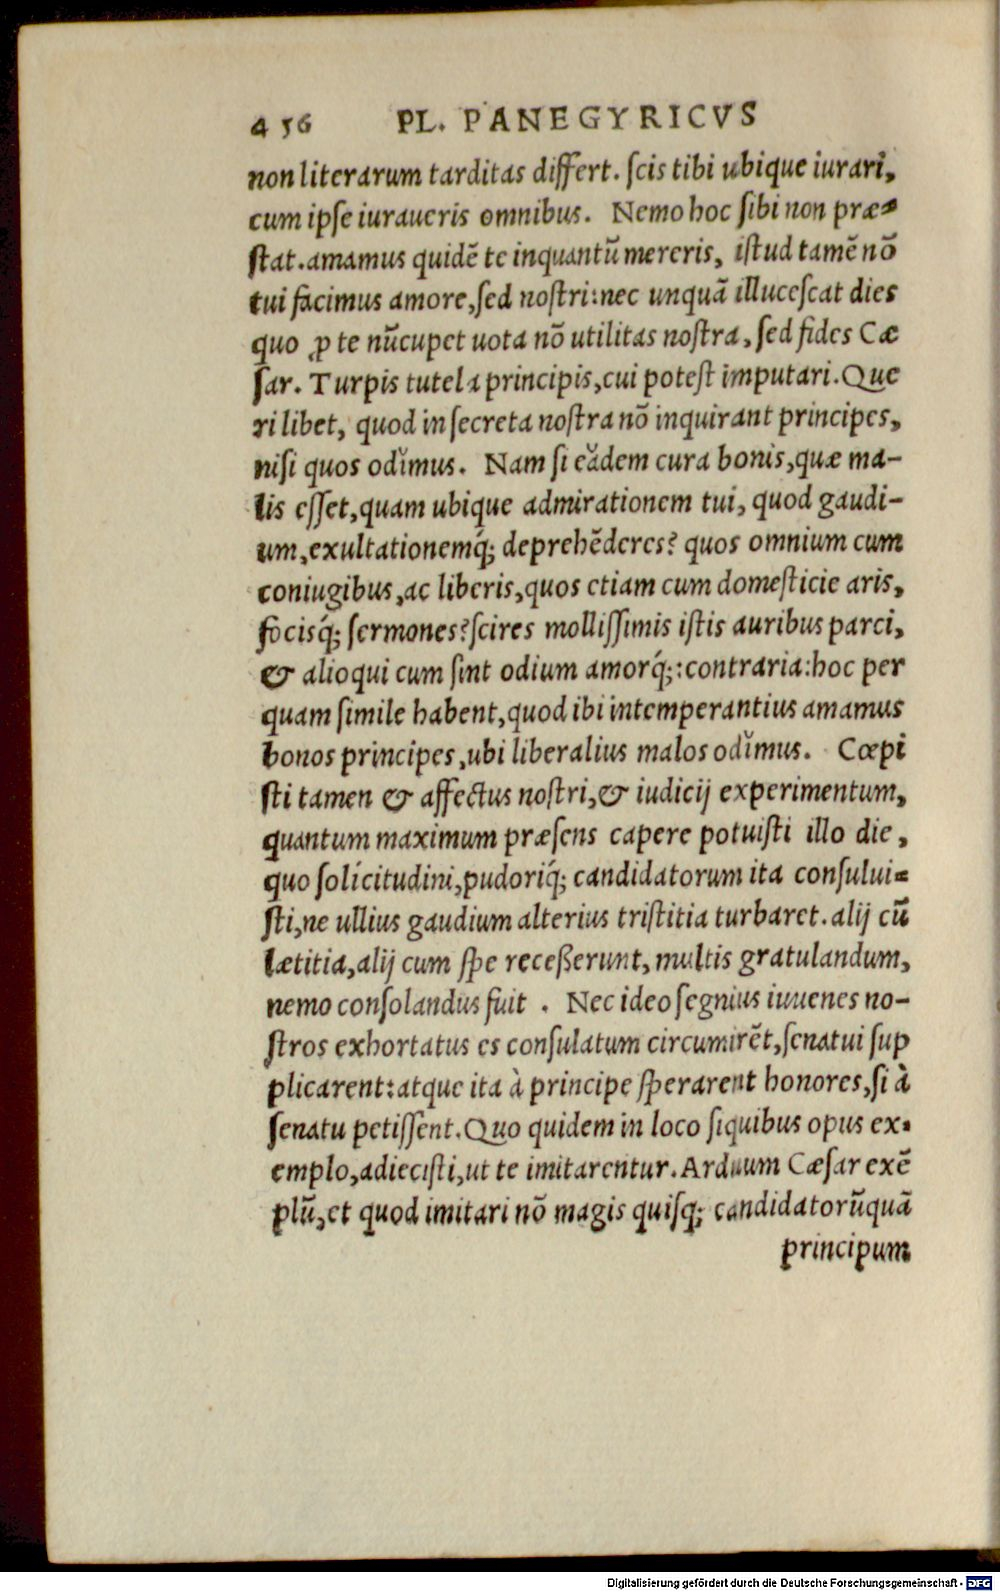 456 PL. PANEGYRICVS
non literarum tarditas differt. ſcis tibi ubique iurari,
cum ipſe iuraueris omnibus. Nemo hoc ſibi non præ-
ſtat. amamus quidē te inquantū mereris, iſtud tamē nō
tui facimus amore, ſed noſtri: nec unquā illuceſcat dies
quo ꝓ te nūcupet uota nō utilitas noſtra, ſed fides Cæ
ſar. Turpis tutela principis, cui poteſt imputari. Que
ri libet, quod in ſecreta noſtra nō inquirant principes,
niſi quos odimus. Nam ſi eadem cura bonis, quæ ma-
lis eſſet, quam ubique admirationem tui, quod gaudi-
um, exultationemq́; deprehēderes? quos omnium cum
coniugibus, ac liberis, quos etiam cum domeſticie aris,
focisq́; ſermones? ſcires molliſſimis iſtis auribus parci,
& alioqui cum ſint odium amorq́;: contraria: hoc per
quam ſimile habent, quod ibi intemperantius amamus
bonos principes, ubi liberalius malos odimus. Cœpi
ſti tamen & affectus noſtri, & iudicij experimentum,
quantum maximum præſens capere potuiſti illo die,
quo ſolicitudini, pudoriq́; candidatorum ita conſului-
ſti, ne ullius gaudium alterius triſtitia turbaret. alij cū
lætitia, alij cum ſpe receßerunt, multis gratulandum,
nemo conſolandus fuit. Nec ideo ſegnius iuuenes no-
ſtros exhortatus es conſulatum circumirēt, ſenatui ſup
plicarent: atque ita à principe ſperarent honores, ſi à
ſenatu petiſſent. Quo quidem in loco ſiquibus opus ex-
emplo, adieciſti, ut te imitarentur. Arduum Cæſar exē
plū, et quod imitari nō magis quiſq; candidatorū quā
principum
Digitalisierung gefördert durch die Deutsche Forschungsgemeinschaft - DFG